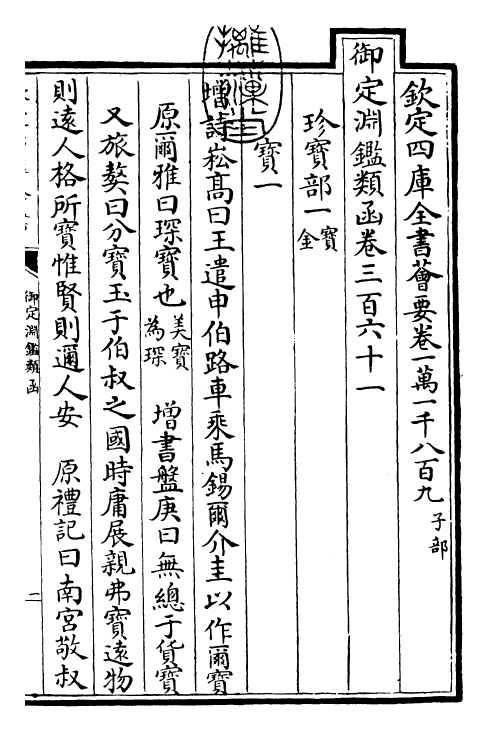 欽定四庫全書薈要卷一萬一千八百九 子部
御定淵鑑類函卷三百六十一
珍寶部一 寶 金
寶一
增詩崧高曰王遣申伯路車乘馬錫爾介圭以作爾寶
原爾雅曰琛寶也 美寶為琛 增書盤庚曰無總于貨寶
又旅獒曰分寶玉于伯叔之國時庸展親弗寶遠物
則遠人格所寶惟賢則邇人安 原禮記曰南宮敬叔
御定淵鑑類函
二